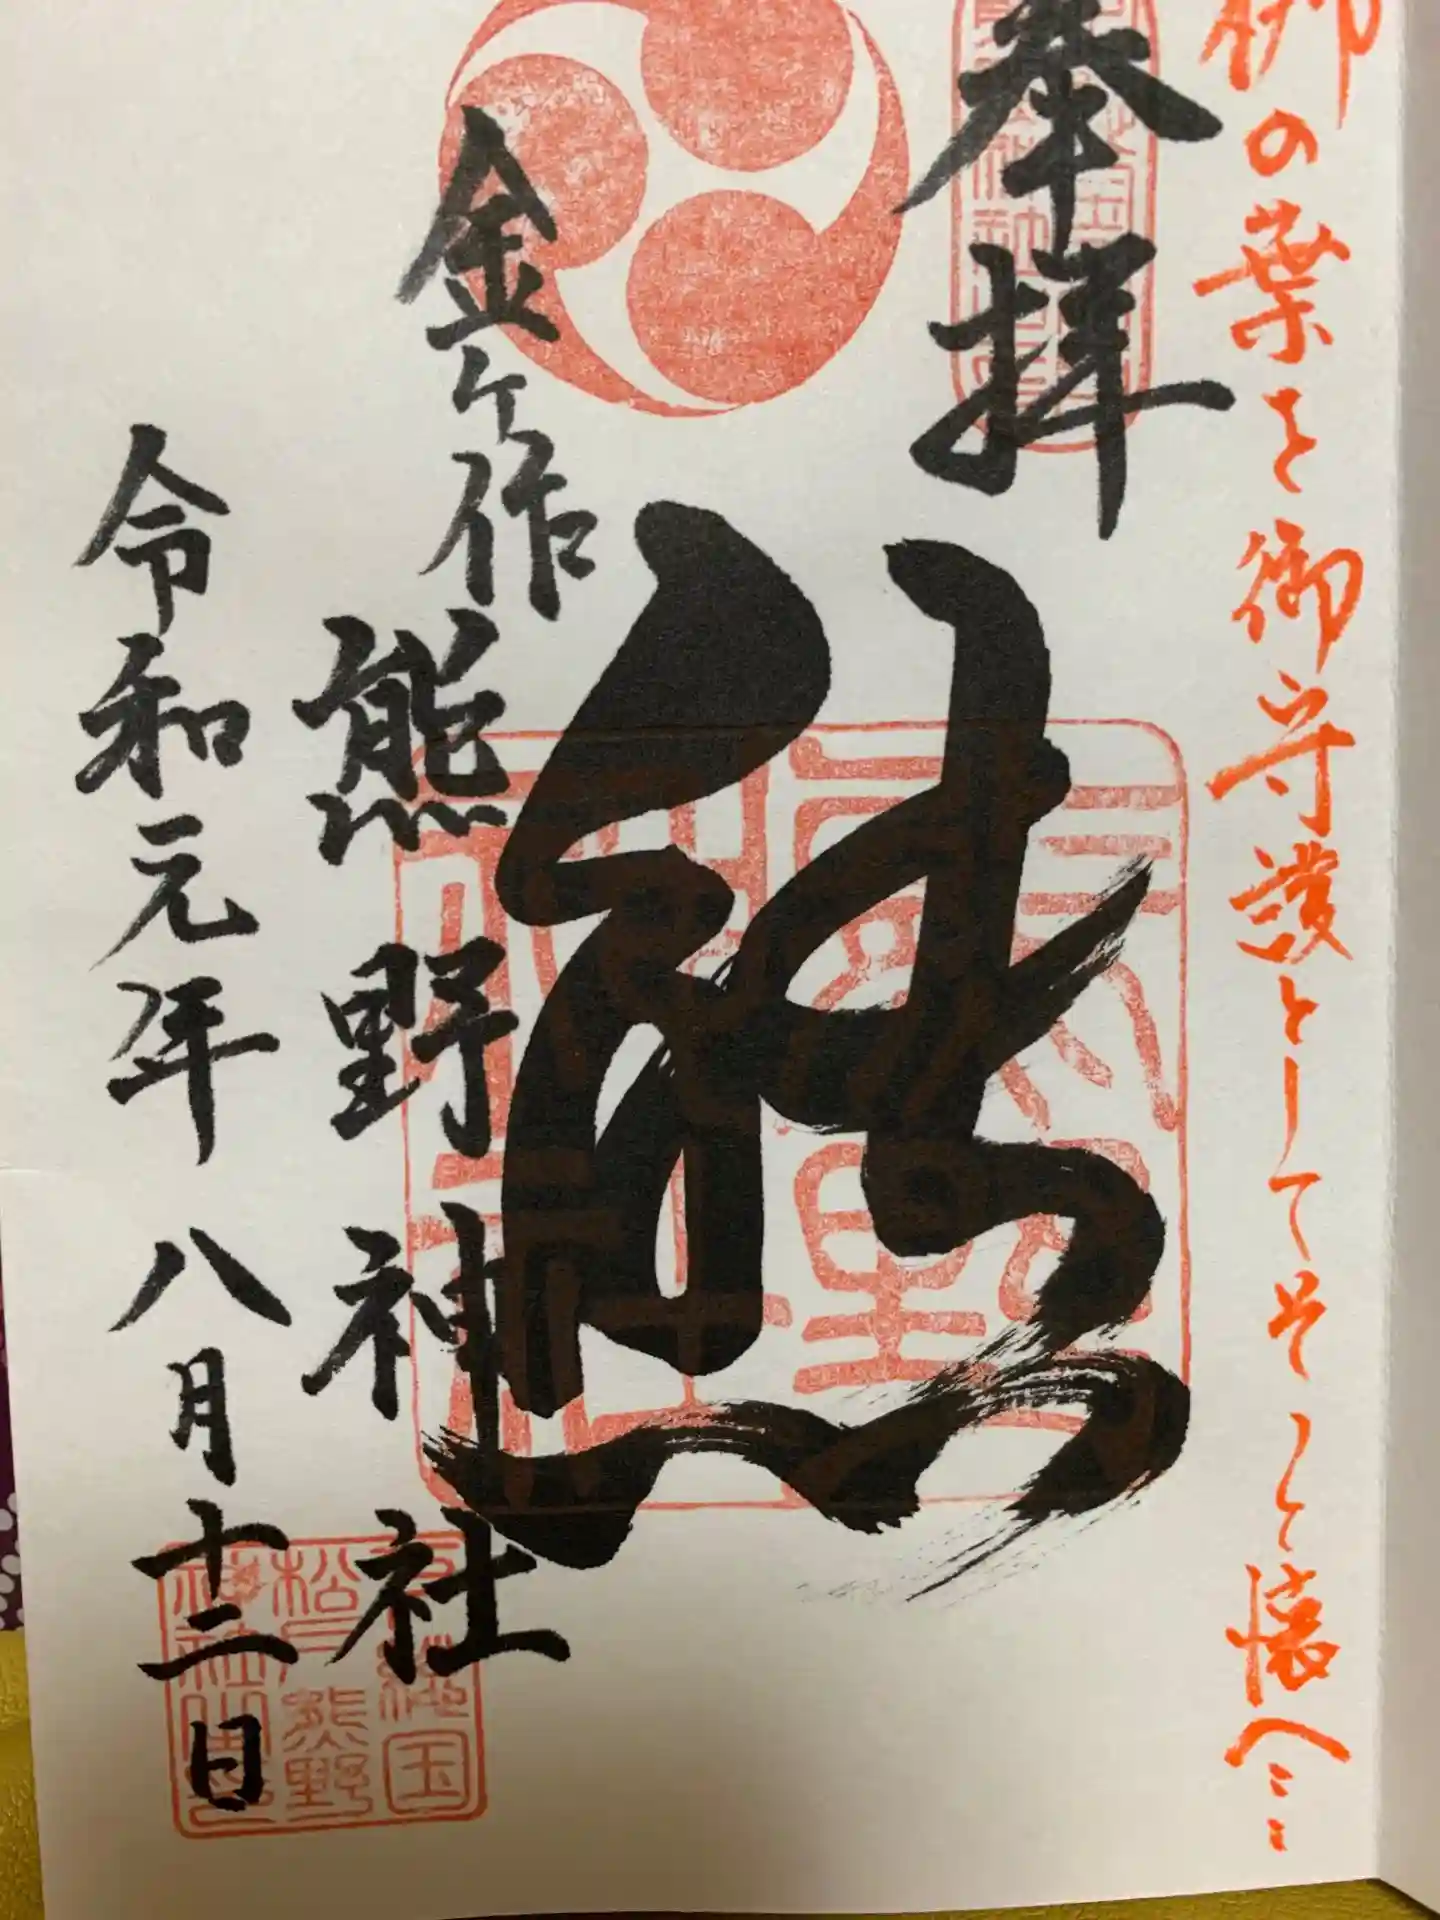 の葉を御守護としてそっと懐へ…
奉拝
熊
金ヶ作
熊野神社
令和元年八月十二日